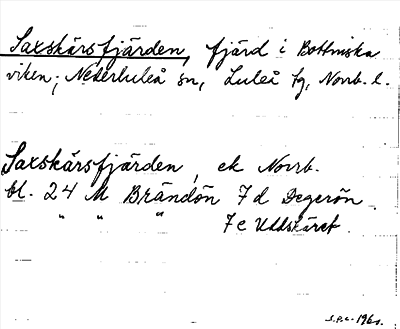 Saxskärsfjärden, fjärd i Bottniska
viken, Nederluleå sn, Luleå tg, Norrb. l.
Saxskärsfjärden, ek Norrb.
bl. 24 M Brändön 7d Degerön
" " " 7e Uddskäret.